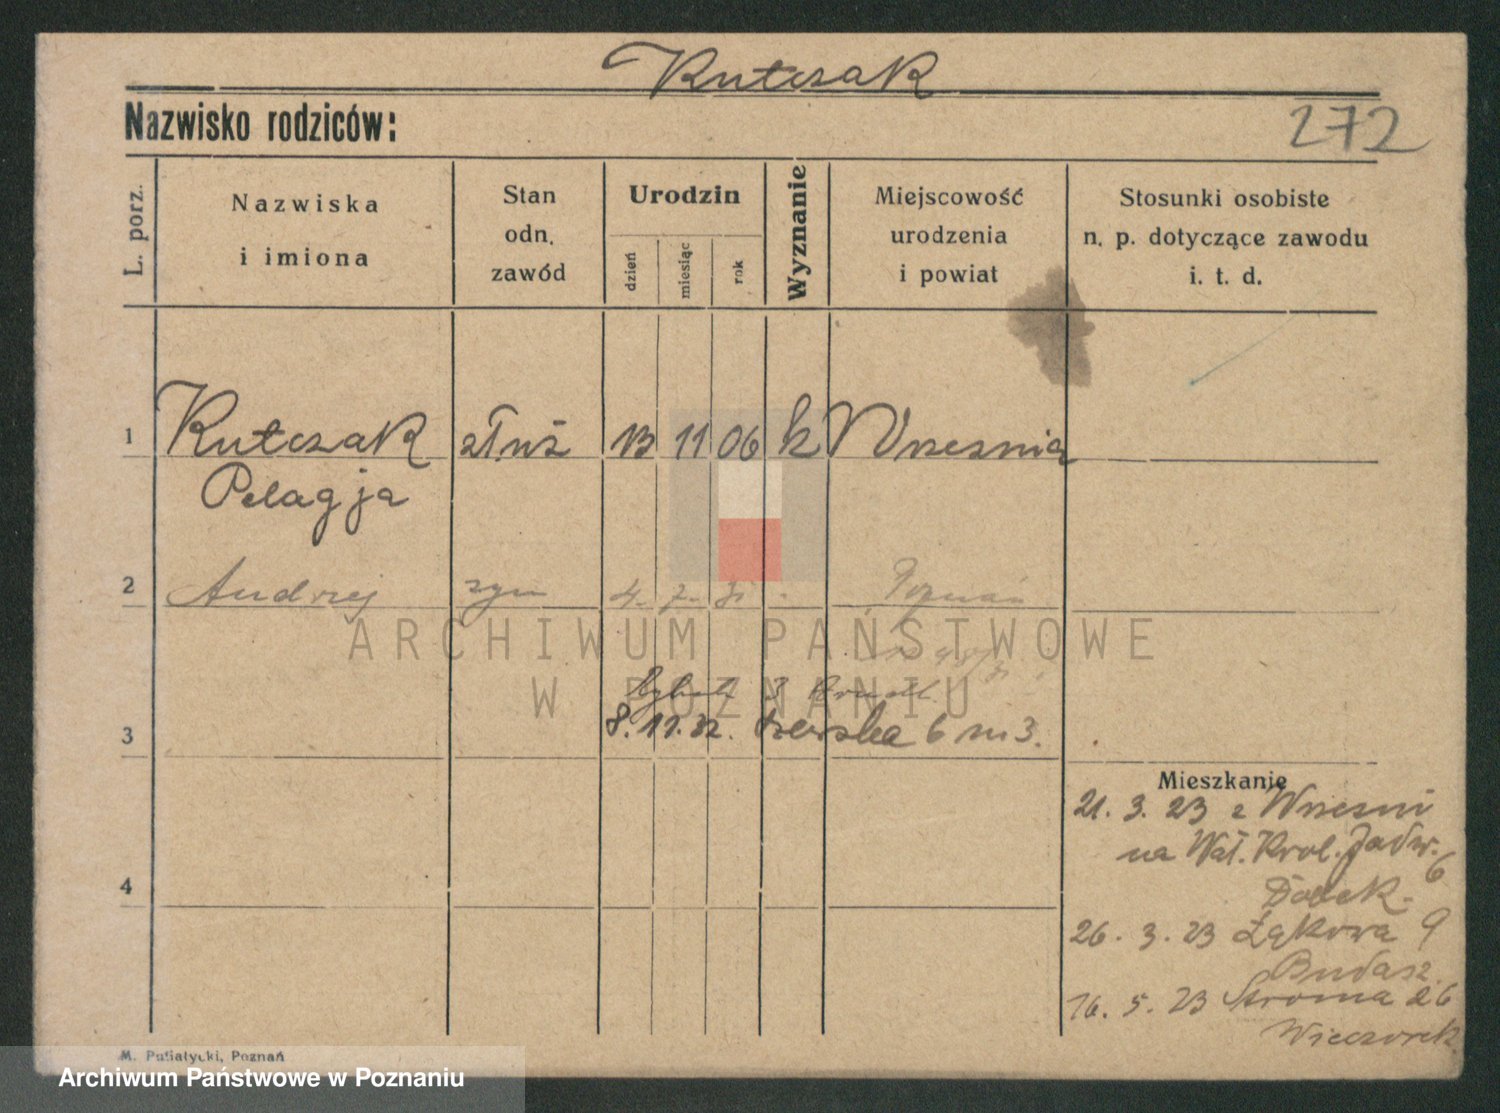 Kutczak
Nazwisko rodziców:
272
L. porz.
Nazwiska
i imiona
Stan
odn.
zawód
Urodzin
dzień
miesiąc
rok
Wyznanie
Miejscowość
urodzenia
i powiat
Stosunki osobiste
n. p. dotyczące zawodu
i. t. d.
1 Kutczak służ 13 11 06 k Wrzesnia
Pelagja
2 Andrzej syn 4. 7. Poznań
ARCHIWUM PAŃSTWOWE
W POZNANIU
3 8.11.32. 6 m 3.
Mieszkanie
21. 3. 23 z Wrzesni
na Wał. Krol. Jadw. 6
4
26. 3. 23 Łąkowa 9
Budasz.
16. 5. 23 Stroma 26
Wieczorek
M. Putiatycki, Poznań
Archiwum Państwowe w Poznaniu